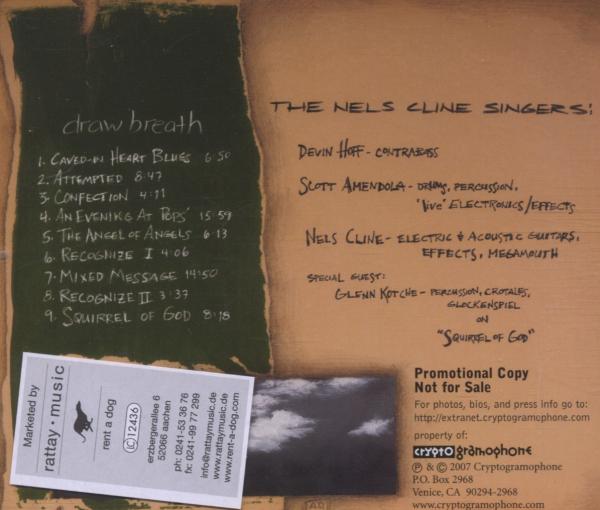 draw breath
1. CAVED-IN HEART BLUES 6:50
2. ATTEMPTED 8:47
3. CONFECTION 4:11
4. AN EVENING AT POPS' 15:59
5. THE ANGEL OF ANGELS 6:13
6. RECOGNIZE I 4:06
7. MIXED MESSAGE 14:50
8. RECOGNIZE II 3:37
9. SQUIRREL OF GOD 8:18
THE NELS CLINE SINGERS:
DEVIN HOFF - CONTRABASS
SCOTT AMENDOLA - DRUMS, PERCUSSION,
"live" ELECTRONICS/EFFECTS
NELS CLINE - ELECTRIC & ACOUSTIC GUITARS,
EFFECTS, MEGAMOUTH
SPECIAL GUEST:
GLENN KOTCHE - PERCUSSION, CROTALES,
GLOCKENSPIEL
ON
"SQUIRREL OF GOD"
Marketed by
rattay · music
rent a dog
LC 12436
erzbergerallee 6
52066 aachen
ph: 0241-53 36 76
fx: 0241-99 77 299
info@rattaymusic.de
www.rattaymusic.de
www.rent-a-dog.com
Promotional Copy
Not for Sale
For photos, bios, and press info go to:
http://extranet.cryptogramophone.com
property of:
crypto gramophone
℗ & © 2007 Cryptogramophone
P.O. Box 2968
Venice, CA 90294-2968
www.cryptogramophone.com